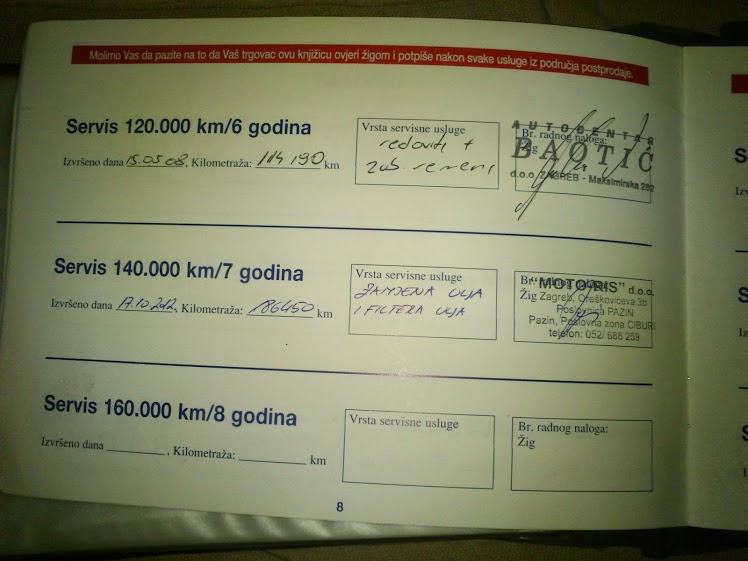 Molimo Vas da pazite na to da Vaš trgovac ovu knjižicu ovjeri žigom i potpiše nakon svake usluge iz područja postprodaje.
Servis 120.000 km/6 godina
Izvršeno dana 15.05.08, Kilometraža: 114 190 km
Vrsta servisne usluge
redoviti +
zub remen
Br. radnog naloga:
Žig
AUTOCENTAR
BAOTIĆ
d.o.o. ZAGREB - Maksimirska 282
Servis 140.000 km/7 godina
Izvršeno dana 17.10.2012, Kilometraža: 186450 km
Vrsta servisne usluge
ZAMJENA ULJA
I FILTERA ULJA
Br. radnog naloga:
Žig
"MOTORIS" d.o.o.
Zagreb, Oreškovićeva 3b
Poslovnica PAZIN
Pazin, Poslovna zona CIBURI
telefon: 052/ 688 259
Servis 160.000 km/8 godina
Izvršeno dana , Kilometraža: km
Vrsta servisne usluge
Br. radnog naloga:
Žig
8